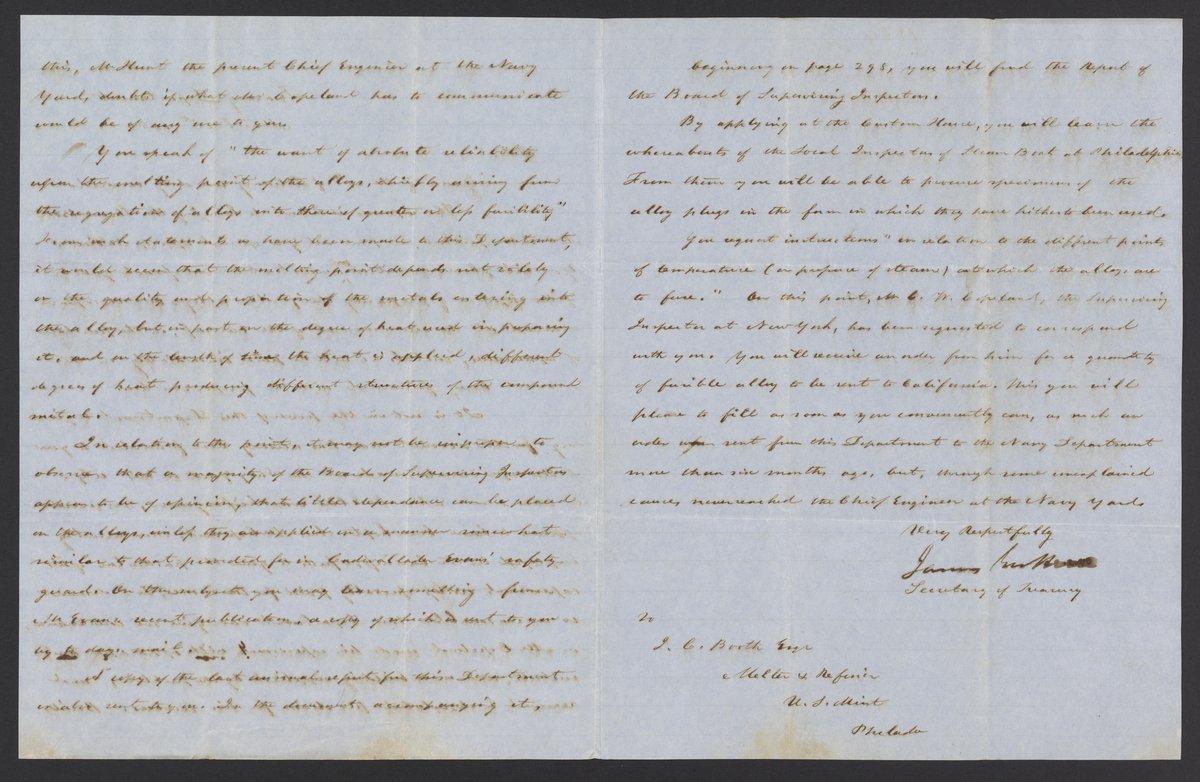 this, Mr Hunt the present Chief Engineer at the Navy
Yard, doubts if what Mr. Copeland has to communicate
would be of any use to you.
You speak of "the want of absolute reliability
upon the melting point of the alloys, chiefly arising from
the segregation of alloys into those of greater or less fusibility"
From such statements as have been made to this Department,
it would seem that the melting point depends not solely
on the quality and proportion of the metals entering into
the alloy, but, in part, on the degree of heat used in preparing
it, and on the length of time the heat is applied, different
degrees of heat producing different structures of the compound
metal.
In relation to this point, it may not be improper to
observe that a majority of the Board of Supervising Inspectors
appear to be of opinion, that little dependance can be placed
on the alloys, unless they are applied in a manner somewhat
similar to that provided for in Cadwallader Evans' safety
guard. On this subject you may learn something from
Mr Evans recent publication, a copy of which is sent to you
by to days mail.
A copy of the last annual report from this Department
is also sent to you. In the document accompanying it,
beginning on page 298, you will find the Report of
the Board of Supervising Inspectors.
By applying at the Custom House, you will learn the
whereabouts of the Local Inspectors of Steam Boat at Philadelphia
From them you will be able to procure specimens of the
alloy plugs in the form in which they have hitherto been used.
You request instructions "in relation to the different points
of temperature (or pressure of steam) at which the alloys are
to fuse." On this point, Mr C. W. Copeland, the Supervising
Inspector at New York, has been requested to correspond
with you. You will receive an order from him for a quantity
of fusible alloy to be sent to California. This you will
please to fill as soon as you conveniently can, as such an
order was sent from this Department to the Navy Department
more than six months ago, but, through some unexplained
causes never reached the Chief Engineer at the Navy Yard
Very Respectfully
James Guthrie
Secretary of Treasury
To
J. C. Booth Esqr
Melter & Refiner
U. S. Mint
Philada